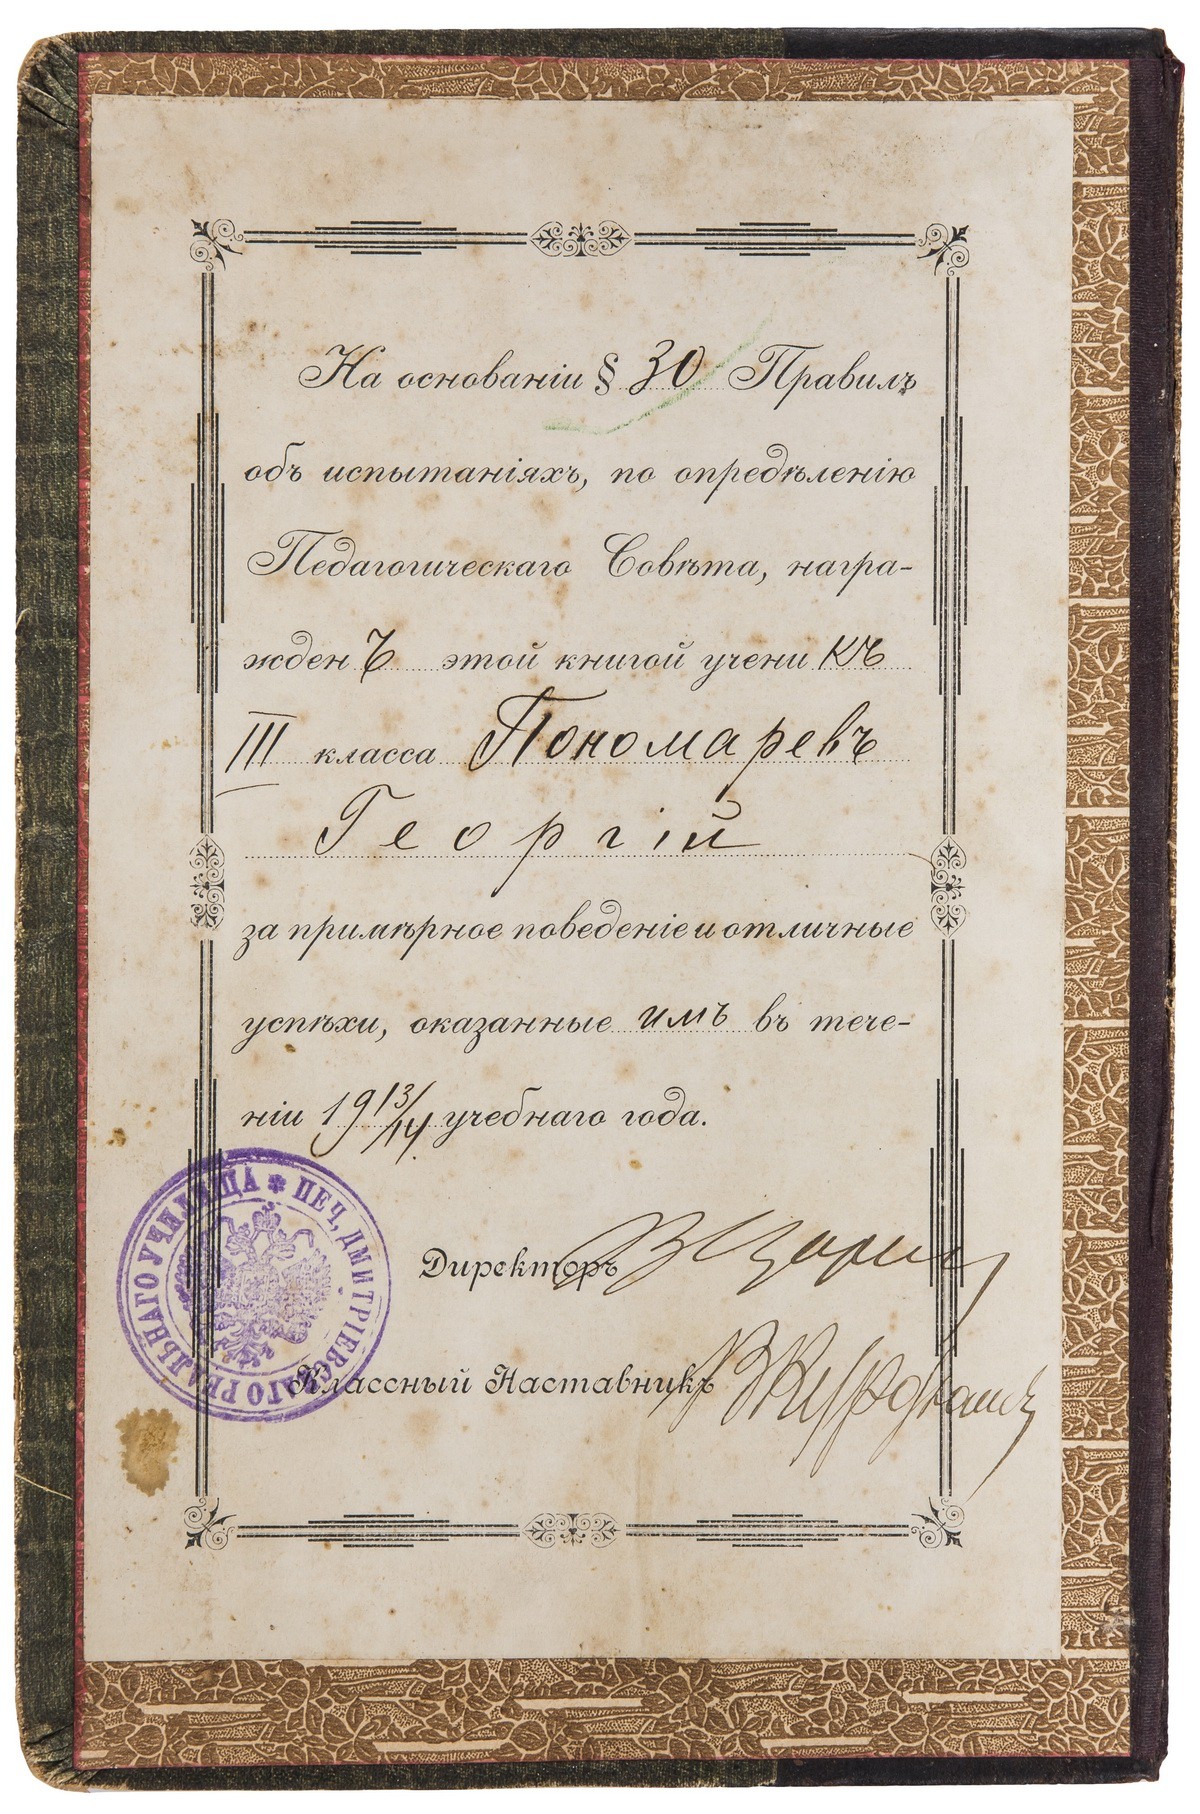 На основаніи § 30 Правилъ
объ испытаніяхъ, по опредѣленію
Педагогическаго Совѣта, награ-
жденъ этой книгой ученикъ
III класса Пономаревъ
Георгій
за примѣрное поведеніе и отличные
успѣхи, оказанные имъ въ тече-
ніи 1913/14 учебнаго года.
ПЕЧ. ДМИТРІЕВСКАГО РЕАЛЬНАГО УЧИЛИЩА
Директоръ
Классный Наставникъ